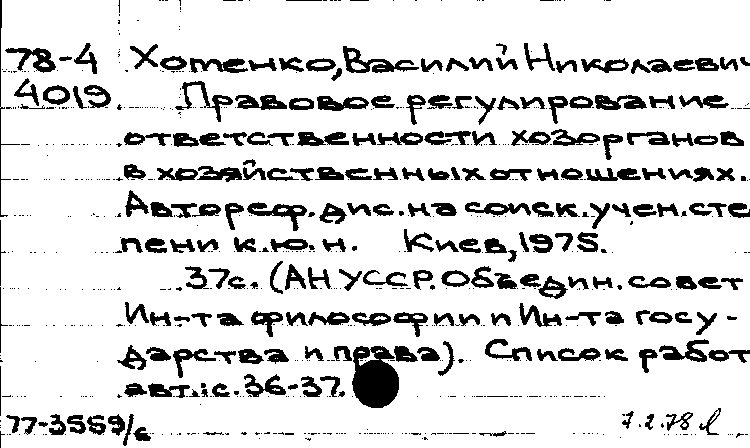 78-4 Хотенко, Василий Николаевич
4019. Правовое регулирование
ответственности хозорганов
в хозяйственных отношениях.
Автореф. дис. на соиск. учен. сте
пени к.ю.н. Киев, 1975.
37с. (АН УССР. Объедин. совет
Ин-та философии и Ин-та госу-
дарства и права). Список работ
авт.: с. 36-37.
77-3559/с 7.2.78